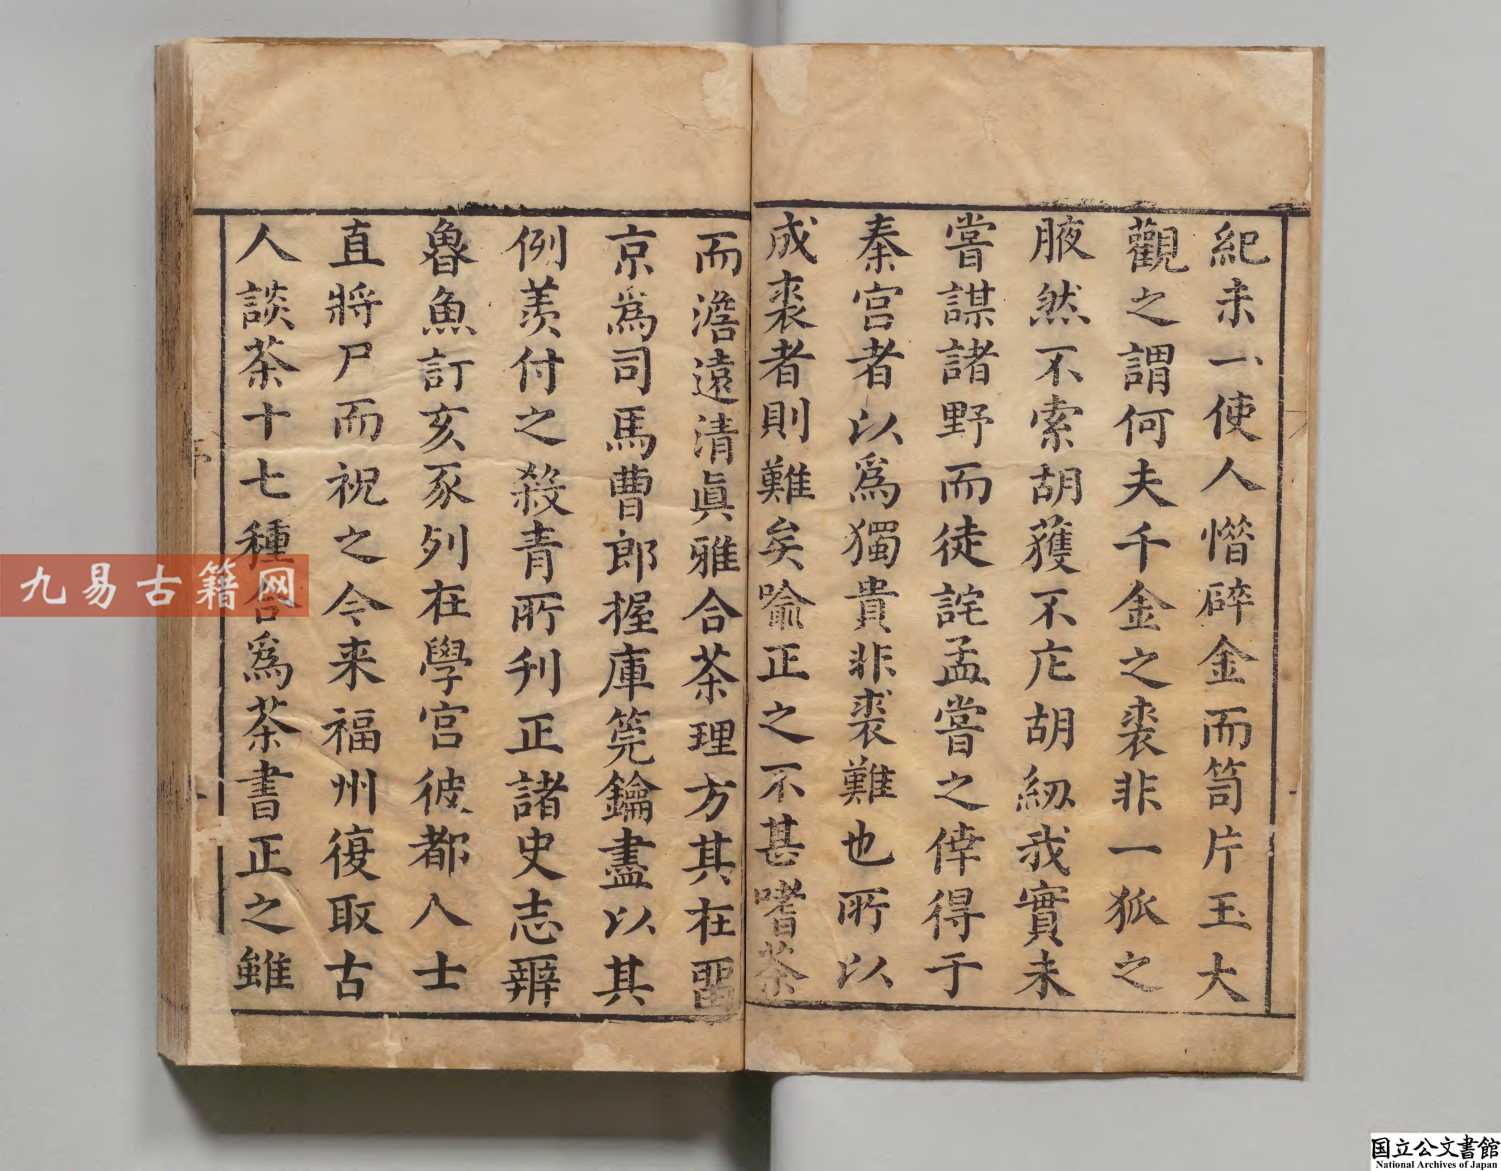 紀来一使人憯碎金而笥片玉大
觀之謂何夫千金之裘非一狐之
腋然不索胡獲不庀胡紉我實未
嘗謀諸野而徒詫孟嘗之倖得于
秦宫者以為獨貴非裘難也所以
成裘者則難矣喻正之不甚嗜茶
而澹遠清眞雅合茶理方其在留
京為司馬曹郎握庫筦鑰盡以其
例羨付之殺青所刋正諸史志辨
魯魚訂亥豕列在學宫彼都人士
直將尸而祝之今来福州復取古
人談茶十七種合為茶書正之雖
九易古籍网
国立公文書館
National Archives of Japan